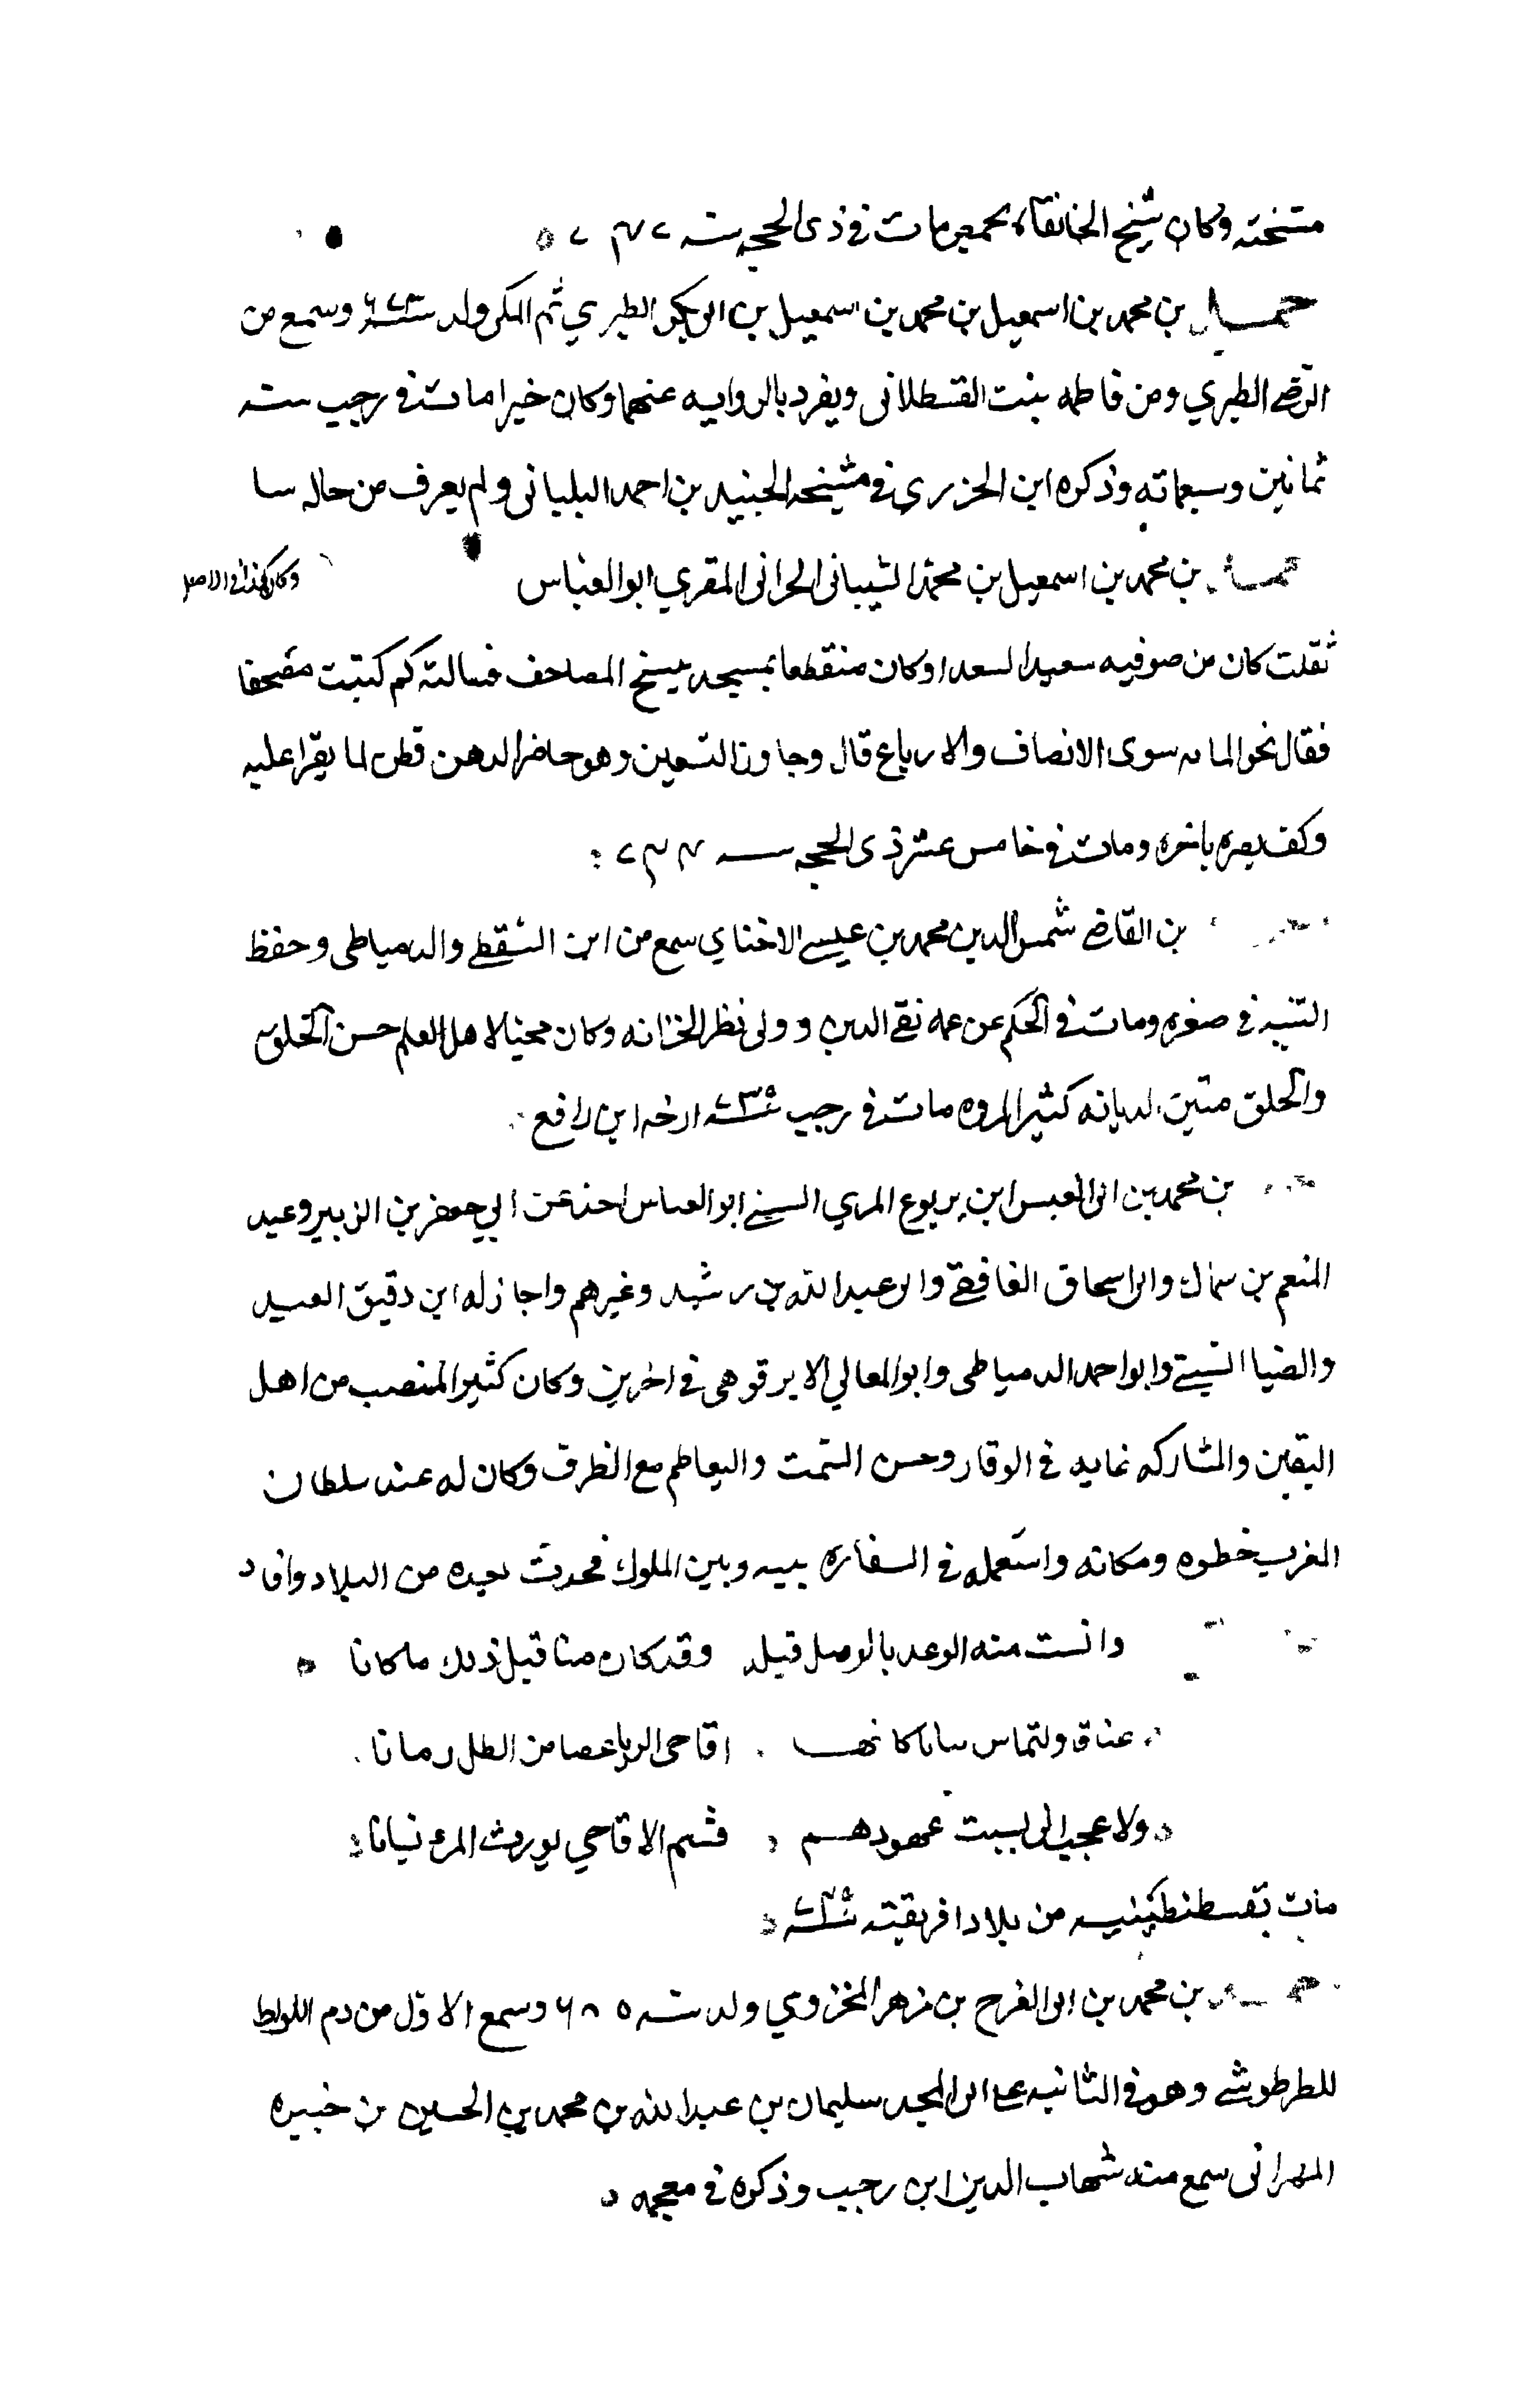 مشيخته وكان شيخ الخانقاه بحمص ومات في ذى الحجه سنه
بن محمد بن اسمعيل بن محمد بن اسمعيل بن ابى بكر الطبري ثم المكى ولد سنة وسمع من
الرضى الطبري ومن فاطمه بنت القسطلانى وتفرد بالروايه عنهما وكان خيرا مات فى رجب سنه
ثمانين وسبعمائه وذكره ابن الجزري في مشيخه الجنيد بن احمد البليانى ولم يعرف من حاله شيا
بن محمد بن اسمعيل بن محمد الشيبانى الحرانى المقري ابو العباس
وكان كذا فى الاصل
ثقلت كان من صوفيه سعيد السعدا وكان منقطعا بمسجد ينسخ المصاحف فسالته كم كتبت مصحفا
فقال نحو المائه سوى الانصاف والارباع قال وجاوز التسعين وهو حاضر الدهن فطن لما يقرا عليه
وكف بصره باخره ومات فى خامس عشر ذى الحجه سنه ٧٣٤
بن القاضى شمس الدين محمد بن عيسى الاخناي سمع من ابن السقطى والدمياطى وحفظ
التنبيه فى صغره ومات فى الحكم عن عمه تقى الدين وولى نظر الخزانه وكان محبا لاهل العلم حسن الخلق
والخلق متين الديانه كثير المروه مات فى رجب سنة ٧٣٩ ارخه ابن رافع
بن محمد بن ابى العيس ابن يربوع المري السبتى ابو العباس اخذ عن ابي جعفر بن الزبير وعبد
المنعم بن سماك وابى اسحاق الغافقى وابى عبد الله بن رشيد وغيرهم واجاز له ابن دقيق العيد
والضيا السبتى وابو احمد الدمياطى وابو المعالي الابرقوهى فى اخرين وكان كثير المنصب من اهل
اليقين والمشاركه غايه فى الوقار وحسن السمت والتعاظم مع الظرف وكان له عند سلطان
المغرب خطوه ومكانه واستعمله فى السفاره بينه وبين الملوك فحدث بعده من البلاد وافاد
وانست منه الوعد بالوصل قبله وقد كان منا قبل ذلك ما كانا
عناق ولتماس كانها اقاحى الربا من الطل رمانا
ولا عجب انى نسيت عهودهم فشم الاقاحي يورث المرء نسيانا
مات بقسطنطينيه من بلاد افريقيه سنة
بن محمد بن ابى الفرج بن مزهر المخزومي ولد سنه ٦٨٥ وسمع الاول من دم اللواط
للطرطوشى وهو فى الثانيه على ابى المجد سليمان بن عبد الله بن محمد بن الحسين بن خبيره
المهرانى سمع منه شهاب الدين ابن رجب وذكره فى معجمه